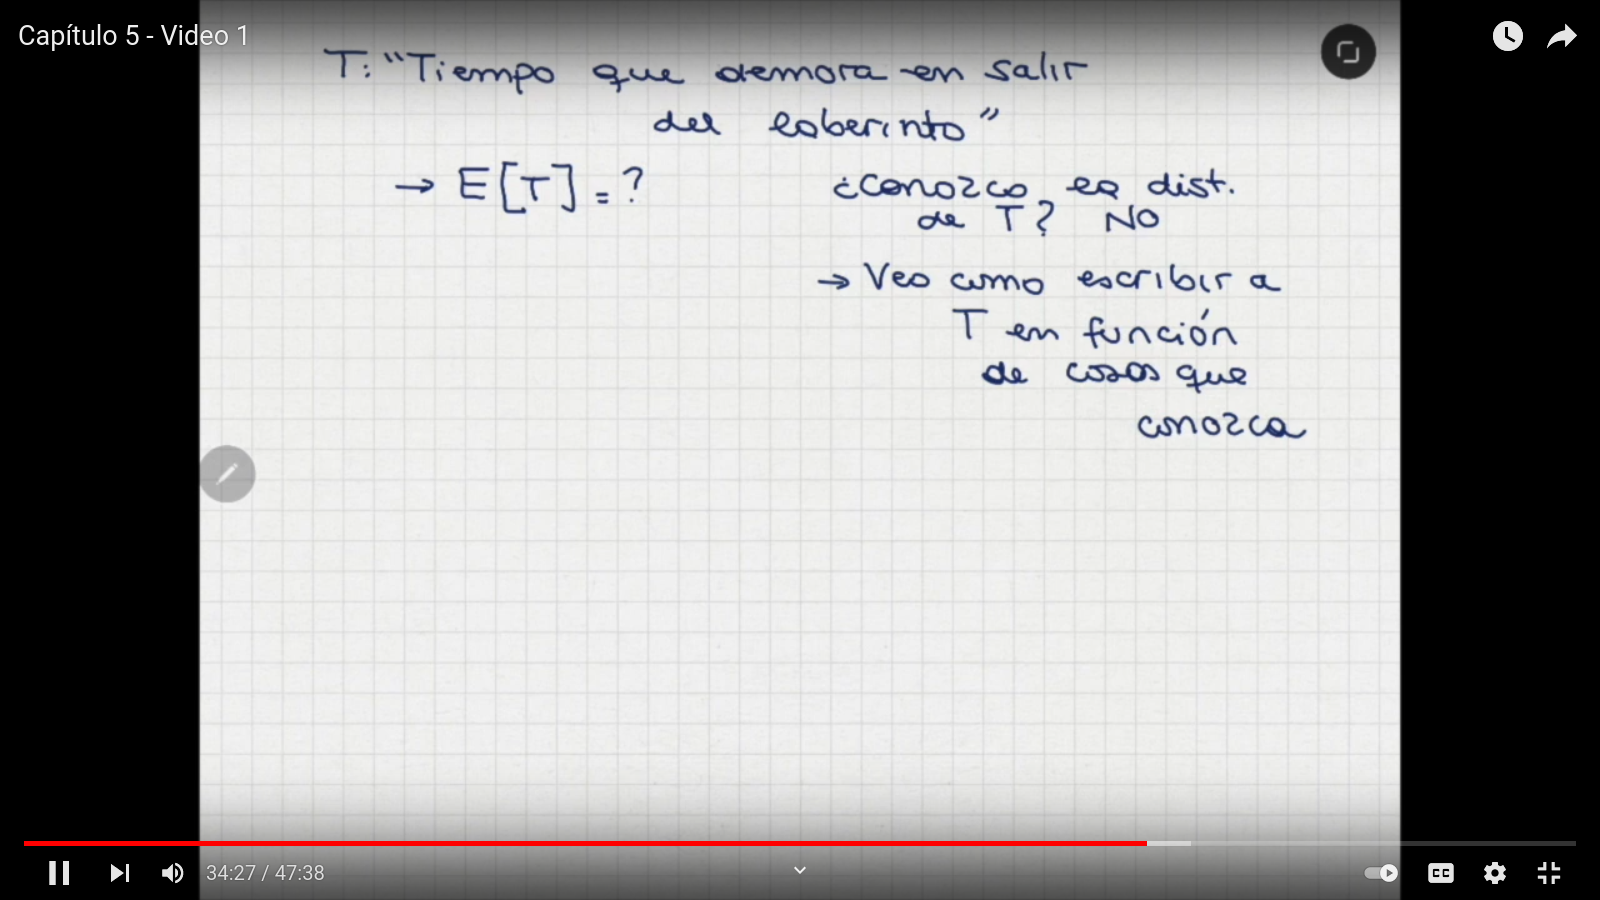 Capítulo 5 - Video 1
T: "Tiempo que demora en salir
del laberinto"
→ E[T] = ?
¿Conozco la dist.
de T? NO
→ Veo como escribir a
T en función
de cosas que
conozca
34:27 / 47:38
CC